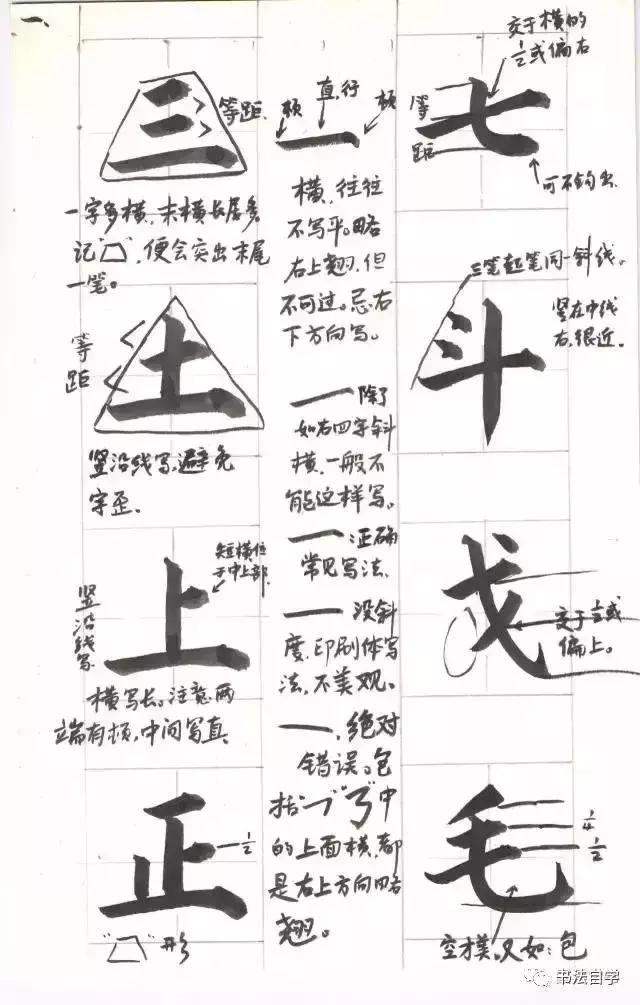 一、
三
等距
一字多横,末横长居多
记“ ”,便会突出末尾
一笔。
土
等
距
竖沿线写,避免
字歪。
上
短横位
于中上部.
竖
沿
线
写
横写长。注意两
端有顿,中间写直
正
1/2
“ ”形
顿
直,行
顿
一
横,往往
不写平。略
右上翘,但
不可过。忌右
下方向写。
一除了
如右四字斜
横,一般不
能这样写。
一正确
常见写法.
一没斜
度,印刷体写
法,不美观。
一,绝对
错误。包
括“ ”“ ”中
的上面横,都
是右上方向略
翘。
交于横的
1/2或偏右
等
距
七
可不钩出
三笔起笔同一斜线。
竖在中线
右,很近。
斗
戈
交于1/2或
偏上。
毛
1/4
1/2
又如:包
书法自学